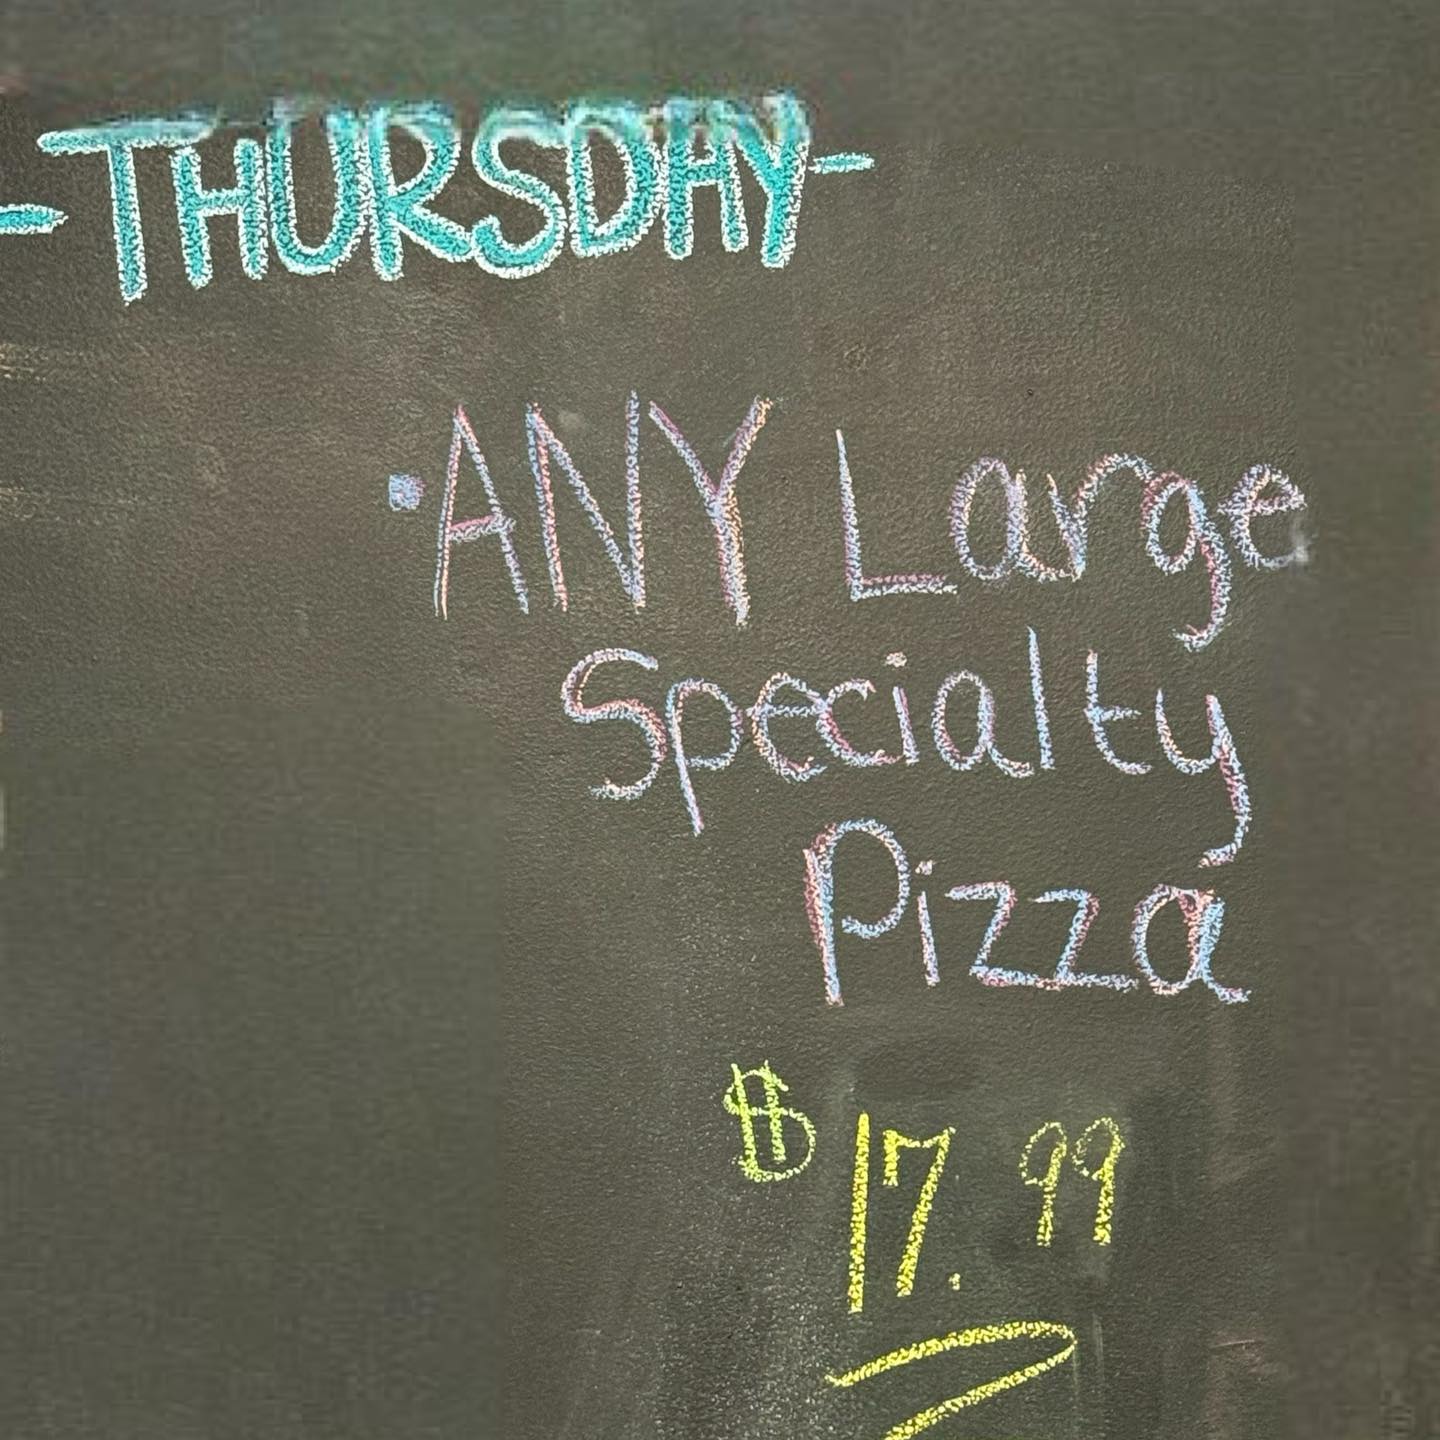 -THURSDAY-
•ANY Large
Specialty
Pizza
$17.99